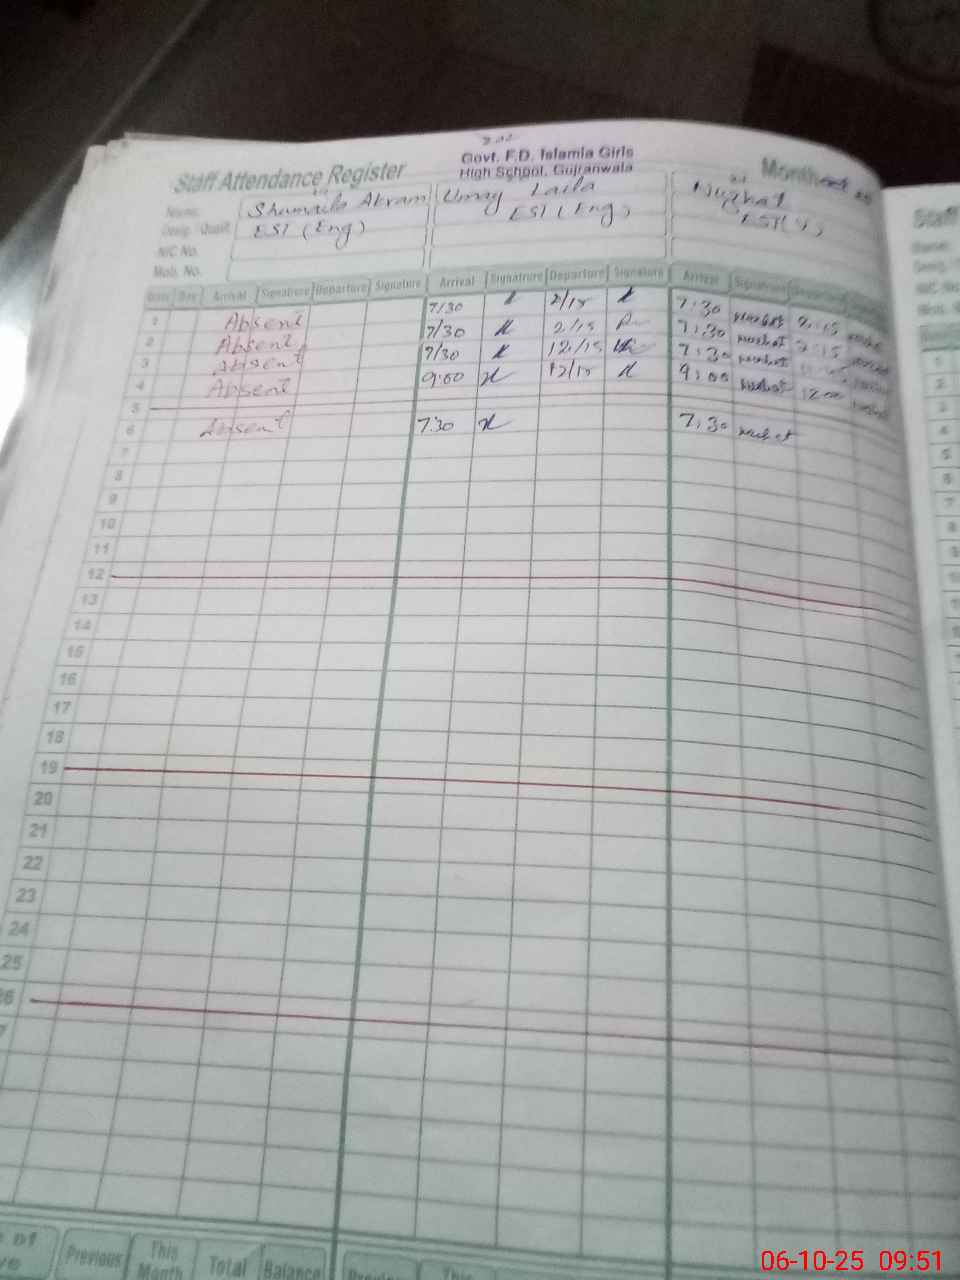 Govt. F.D. Islamia Girls
Staff Attendance Register High School, Gujranwala Month
Name: Shumaila Akram Ummy Laila Nuzhat
Desig. / Qualif. EST (Eng) EST (Eng) EST(U)
N/C No.
Mob. No.
Date Day Arrival Signature Departure Signature Arrival Signature Departure Signature Arrival Signature Departure
1 Absent 7/30 2/15 7:30 nuzhat 2:15
2 Absent 7/30 2/15 7:30 nuzhat 2:15
3 Absent 7/30 12/15 7:30 nuzhat
4 Absent 9:00 12/15 9:00 nuzhat 12:00
5
6 Absent 7:30 7:30 nuzhat
7
8
9
10
11
12
13
14
15
16
17
18
19
20
21
22
23
24
25
26
Previous This Month Total Balance
Staff
1
2
3
4
5
6
7
8
9
06-10-25 09:51